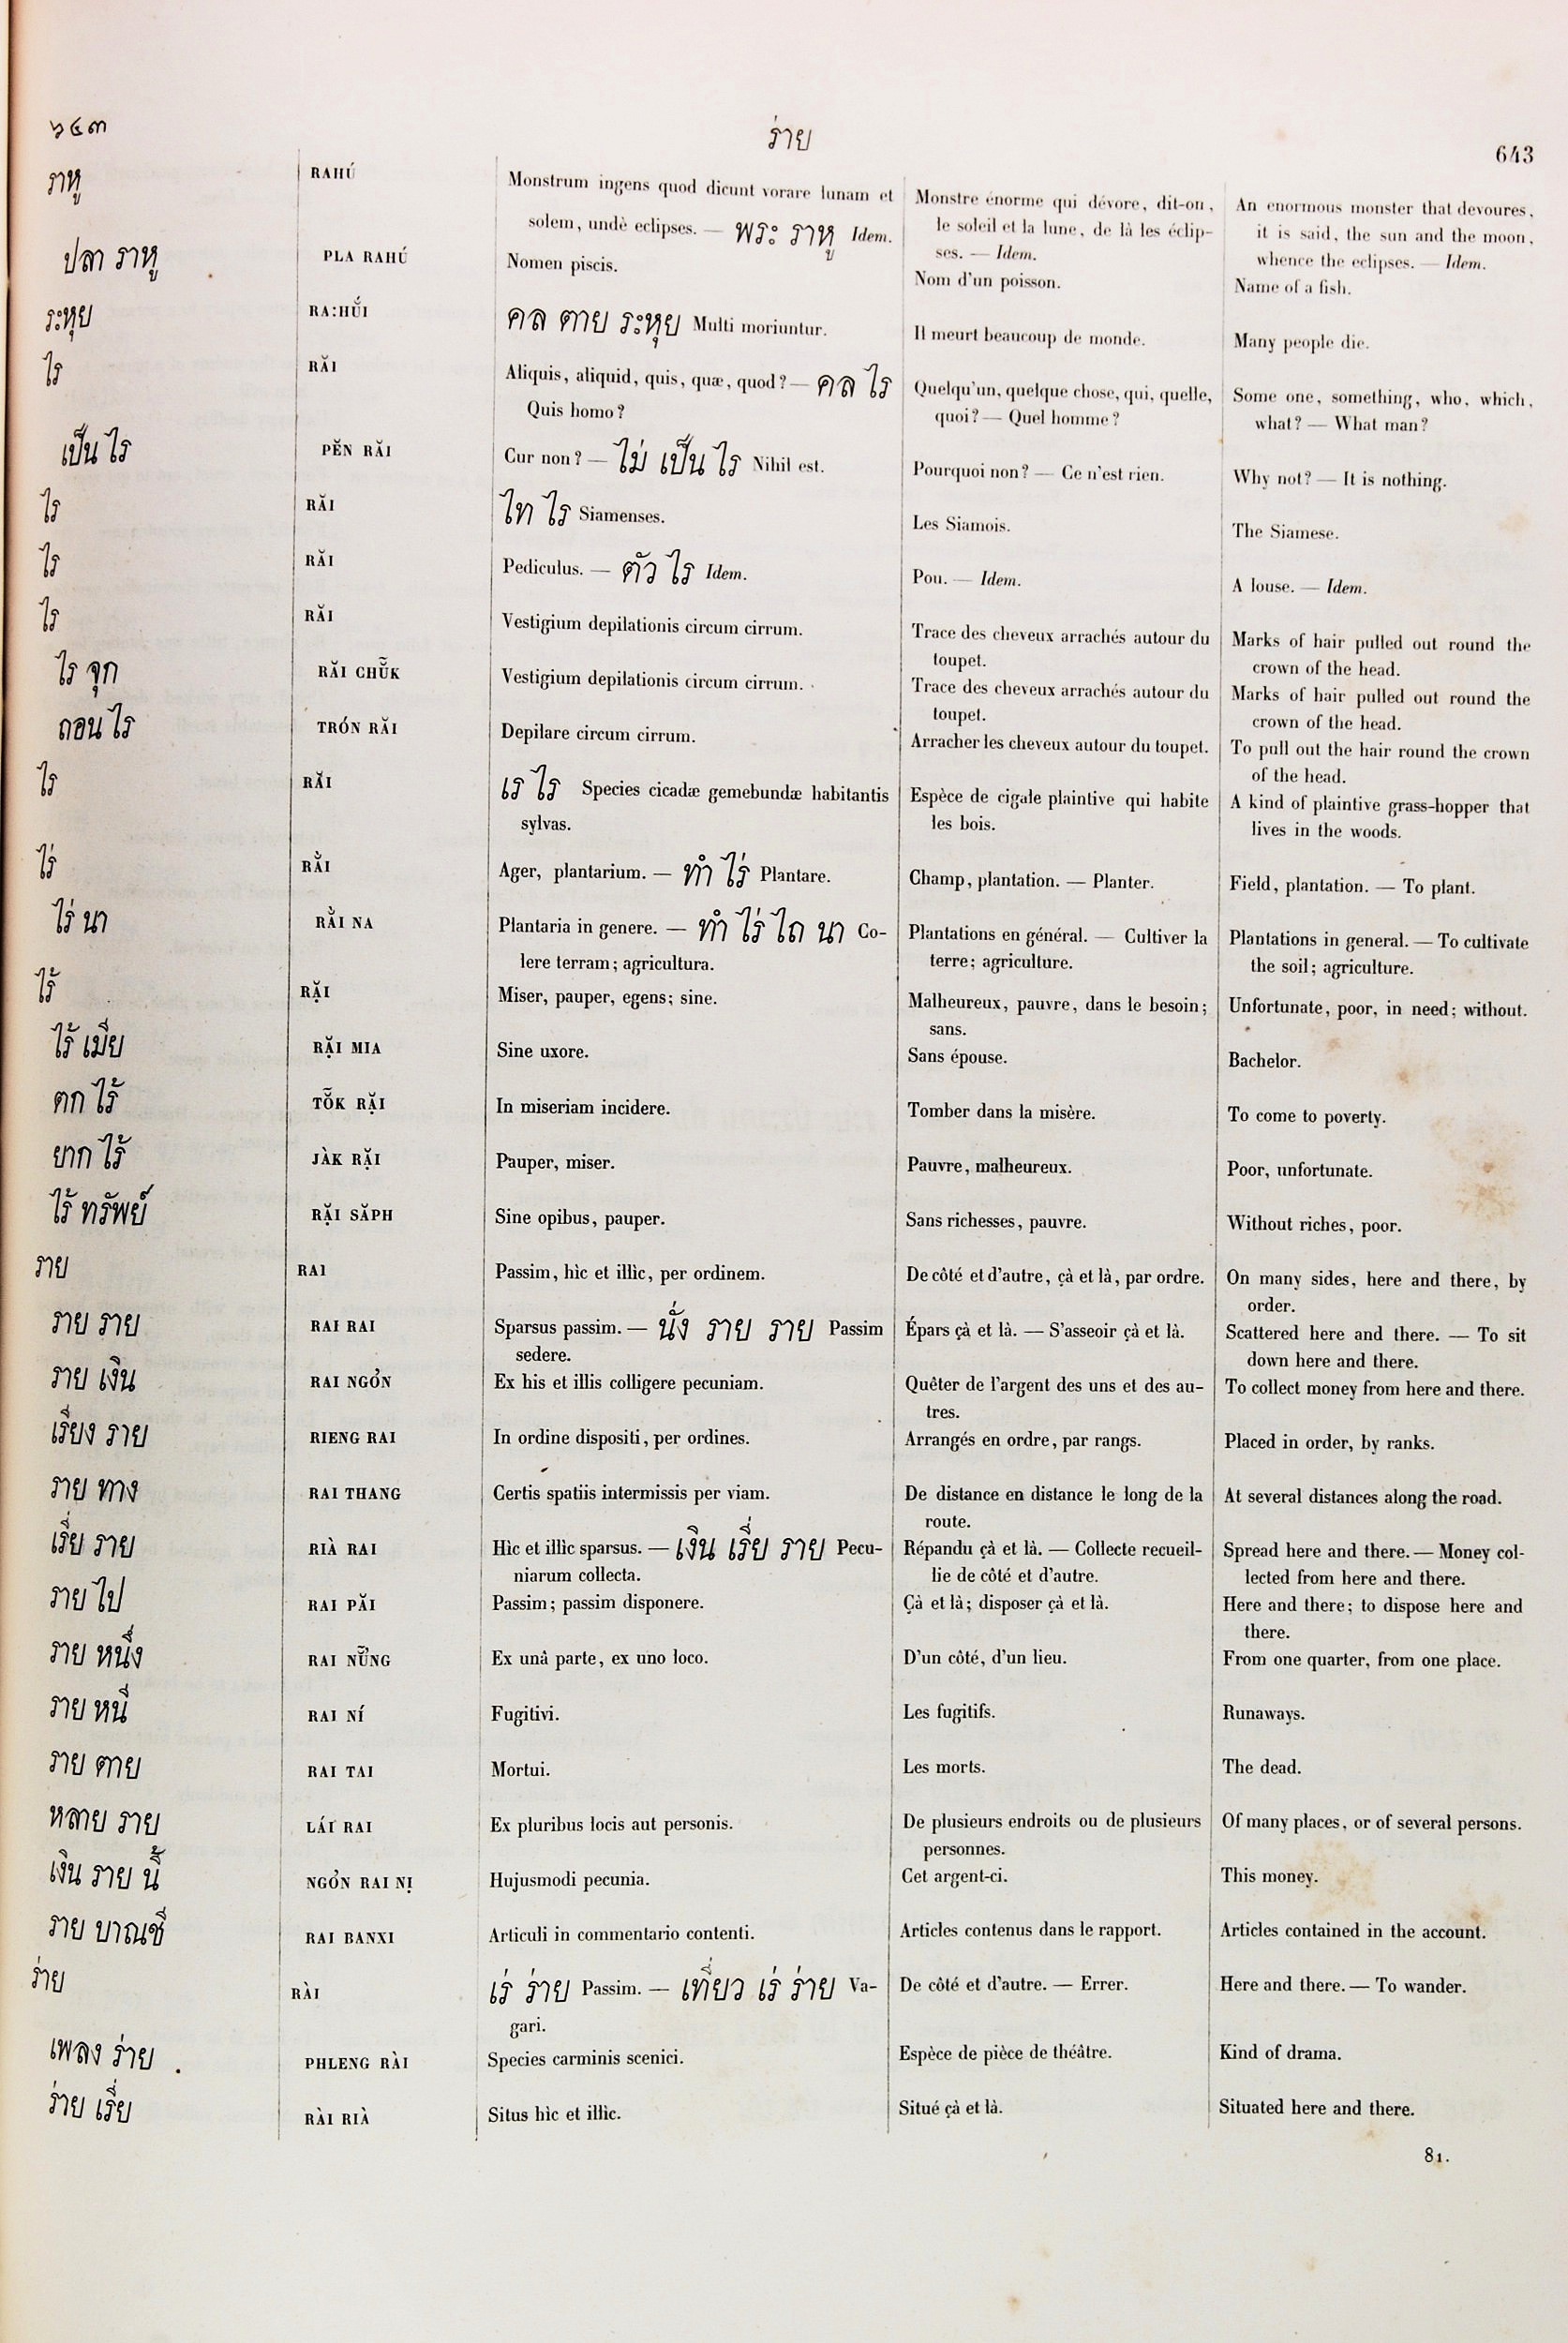 ๖๔๓
ร่าย
643
ราหู
RAHÚ
Monstrum ingens quod dicunt vorare lunam et
solem, undè eclipses. — พระ ราหู Idem.
Monstre énorme qui dévore, dit-on,
le soleil et la lune, de là les éclip-
ses. — Idem.
An enormous monster that devoures,
it is said, the sun and the moon,
whence the eclipses. — Idem.
ปลา ราหู
PLA RAHÚ
Nomen piscis.
Nom d'un poisson.
Name of a fish.
ระหุย
RA:HŬ́I
คล ตาย ระหุย Multi moriuntur.
Il meurt beaucoup de monde.
Many people die.
ไร
RĂI
Aliquis, aliquid, quis, quæ, quod? — คล ไร
Quis homo?
Quelqu'un, quelque chose, qui, quelle,
quoi? — Quel homme?
Some one, something, who, which,
what? — What man?
เป็น ไร
PĔN RĂI
Cur non? — ไม่ เป็น ไร Nihil est.
Pourquoi non? — Ce n'est rien.
Why not? — It is nothing.
ไร
RĂI
ไท ไร Siamenses.
Les Siamois.
The Siamese.
ไร
RĂI
Pediculus. — ตัว ไร Idem.
Pou. — Idem.
A louse. — Idem.
ไร
RĂI
Vestigium depilationis circum cirrum.
Trace des cheveux arrachés autour du
toupet.
Marks of hair pulled out round the
crown of the head.
ไร จุก
RĂI CHŬ̃K
Vestigium depilationis circum cirrum.
Trace des cheveux arrachés autour du
toupet.
Marks of hair pulled out round the
crown of the head.
ถอน ไร
TRÓN RĂI
Depilare circum cirrum.
Arracher les cheveux autour du toupet.
To pull out the hair round the crown
of the head.
ไร
RĂI
เร ไร Species cicadæ gemebundæ habitantis
sylvas.
Espèce de cigale plaintive qui habite
les bois.
A kind of plaintive grass-hopper that
lives in the woods.
ไร่
RẰI
Ager, plantarium. — ทำ ไร่ Plantare.
Champ, plantation. — Planter.
Field, plantation. — To plant.
ไร่ นา
RẰI NA
Plantaria in genere. — ทำ ไร่ ไถ นา Co-
lere terram; agricultura.
Plantations en général. — Cultiver la
terre; agriculture.
Plantations in general. — To cultivate
the soil; agriculture.
ไร้
RẶI
Miser, pauper, egens; sine.
Malheureux, pauvre, dans le besoin;
sans.
Unfortunate, poor, in need; without.
ไร้ เมีย
RẶI MIA
Sine uxore.
Sans épouse.
Bachelor.
ตก ไร้
TŎ̃K RẶI
In miseriam incidere.
Tomber dans la misère.
To come to poverty.
ยาก ไร้
JÀK RẶI
Pauper, miser.
Pauvre, malheureux.
Poor, unfortunate.
ไร้ ทรัพย์
RẶI SĂPH
Sine opibus, pauper.
Sans richesses, pauvre.
Without riches, poor.
ราย
RAI
Passim, hìc et illìc, per ordinem.
De côté et d'autre, çà et là, par ordre.
On many sides, here and there, by
order.
ราย ราย
RAI RAI
Sparsus passim. — นั่ง ราย ราย Passim
sedere.
Épars çà et là. — S'asseoir çà et là.
Scattered here and there. — To sit
down here and there.
ราย เงิน
RAI NGỎN
Ex his et illis colligere pecuniam.
Quêter de l'argent des uns et des au-
tres.
To collect money from here and there.
เรียง ราย
RIENG RAI
In ordine dispositi, per ordines.
Arrangés en ordre, par rangs.
Placed in order, by ranks.
ราย ทาง
RAI THANG
Certis spatiis intermissis per viam.
De distance en distance le long de la
route.
At several distances along the road.
เรี่ย ราย
RIÀ RAI
Hìc et illìc sparsus. — เงิน เรี่ย ราย Pecu-
niarum collecta.
Répandu çà et là. — Collecte recueil-
lie de côté et d'autre.
Spread here and there. — Money col-
lected from here and there.
ราย ไป
RAI PĂI
Passim; passim disponere.
Çà et là; disposer çà et là.
Here and there; to dispose here and
there.
ราย หนึ่ง
RAI NỬ̆NG
Ex unâ parte, ex uno loco.
D'un côté, d'un lieu.
From one quarter, from one place.
ราย หนี
RAI NÍ
Fugitivi.
Les fugitifs.
Runaways.
ราย ตาย
RAI TAI
Mortui.
Les morts.
The dead.
หลาย ราย
LÁI RAI
Ex pluribus locis aut personis.
De plusieurs endroits ou de plusieurs
personnes.
Of many places, or of several persons.
เงิน ราย นี้
NGỎN RAI NỊ
Hujusmodi pecunia.
Cet argent-ci.
This money.
ราย บาณชี
RAI BANXI
Articuli in commentario contenti.
Articles contenus dans le rapport.
Articles contained in the account.
ร่าย
RÀI
เร่ ร่าย Passim. — เที่ยว เร่ ร่าย Va-
gari.
De côté et d'autre. — Errer.
Here and there. — To wander.
เพลง ร่าย
PHLENG RÀI
Species carminis scenici.
Espèce de pièce de théâtre.
Kind of drama.
ร่าย เรี่ย
RÀI RIÀ
Situs hìc et illìc.
Situé çà et là.
Situated here and there.
81.